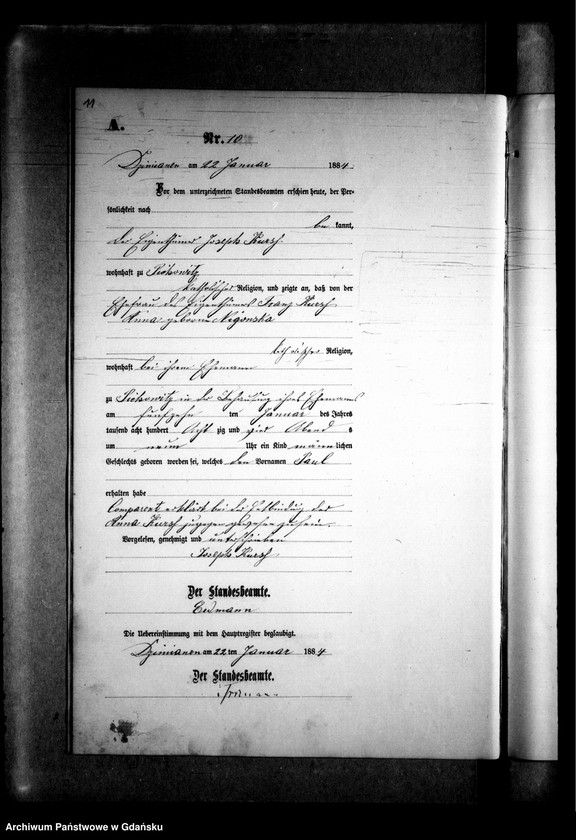 11
A.
Nr. 10
Dzimianen am 22 Januar 1884
Vor dem unterzeichneten Standesbeamten erschien heute, der Per-
sönlichkeit nach
be kannt,
der Eigenthümer Joseph Kursch
wohnhaft zu Piechowitz
katholischer Religion, und zeigte an, daß von der
Ehefrau des Eigenthümers Franz Kursch
Anna geborene
katholischer Religion,
wohnhaft bei ihrem Ehemann
zu Piechowitz in der Behausung ihres Ehemanns
am fünfzehn ten Januar des Jahres
tausend acht hundert Acht zig und vier Abend s
um neun Uhr ein Kind männ lichen
Geschlechts geboren worden sei, welches den Vornamen Paul
erhalten habe
Comparent erklärt bei der Entbindung der
Anna Kursch zugegen gewesen zu sein.
Vorgelesen, genehmigt und unterschrieben
Joseph Kursch
Der Standesbeamte.
Erdmann
Die Uebereinstimmung mit dem Hauptregister beglaubigt.
Dzimianen am 22 ten Januar 1884
Der Standesbeamte.
Archiwum Państwowe w Gdańsku